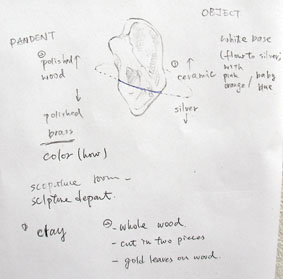 OBJECT
PANDENT
② polished ↑
wood
↓
polished
brass
color (how)
sculpture room -
sclpture depart.
① ↑
ceramic
silver
↓
white base
(flow to silver)
with
pink / baby
orange / blue
clay
② - whole wood.
- cut in two pieces
- gold leaves on wood.